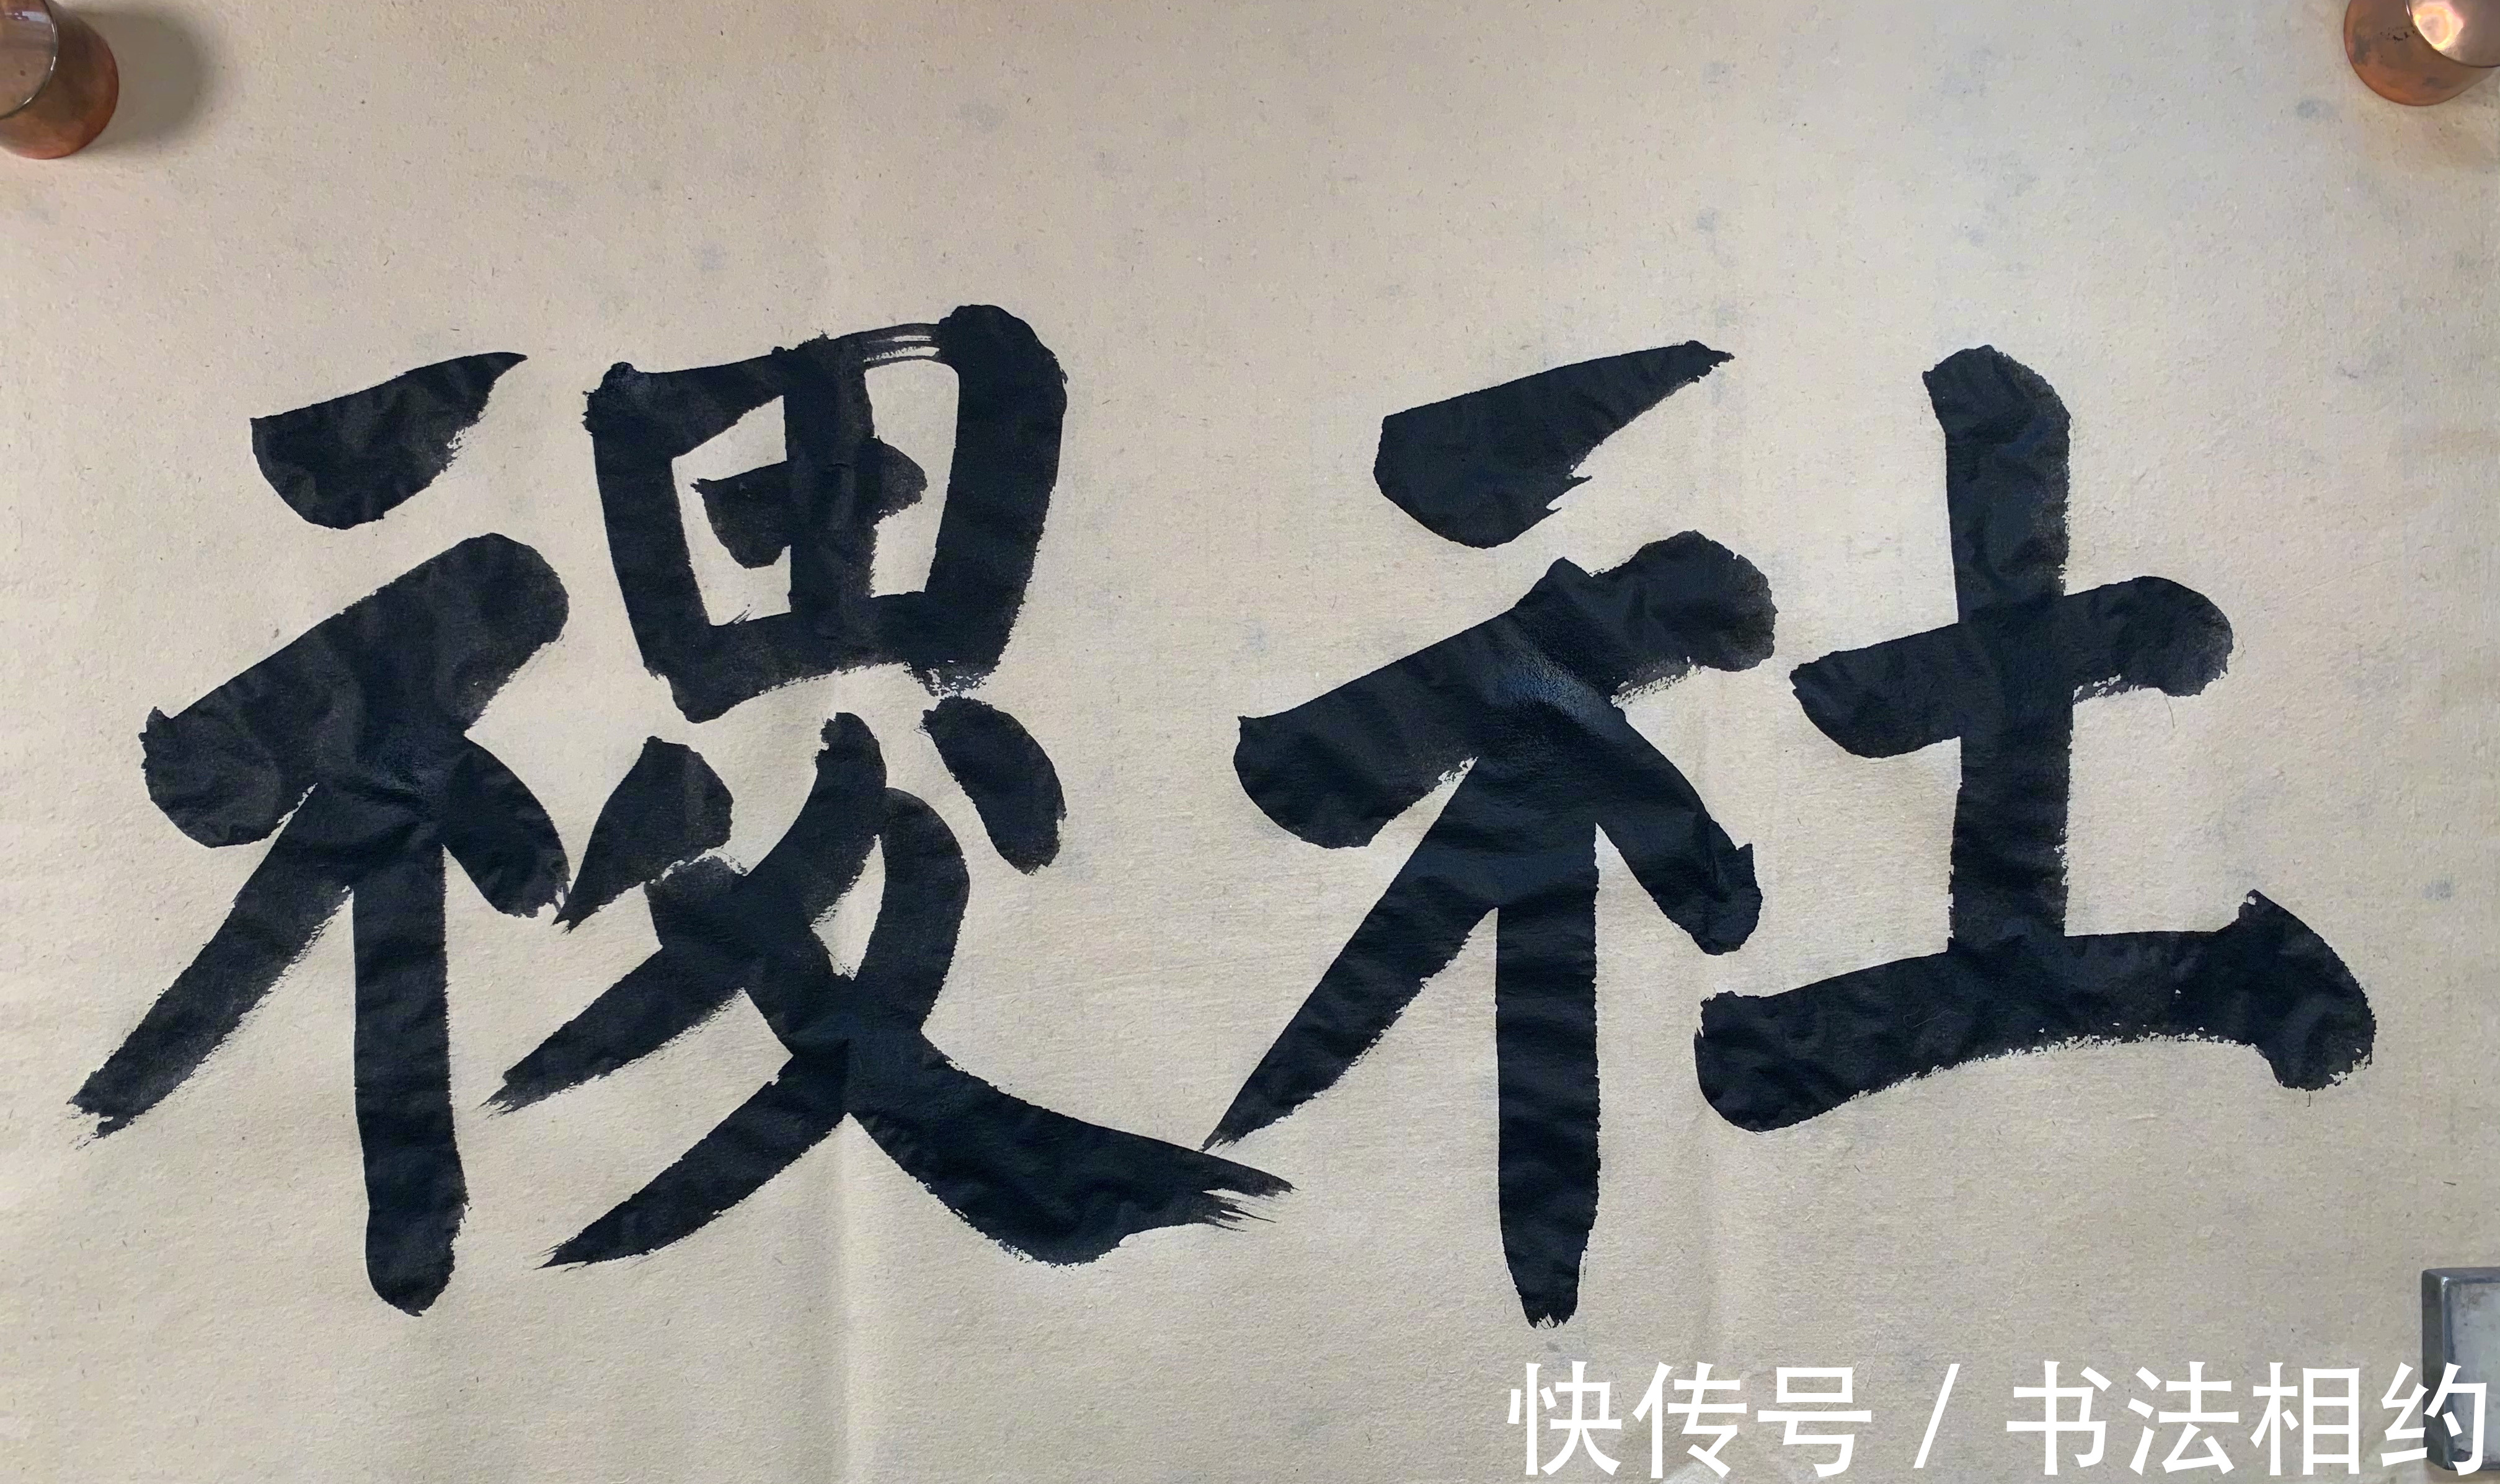 社禝
快传号 / 书法相约